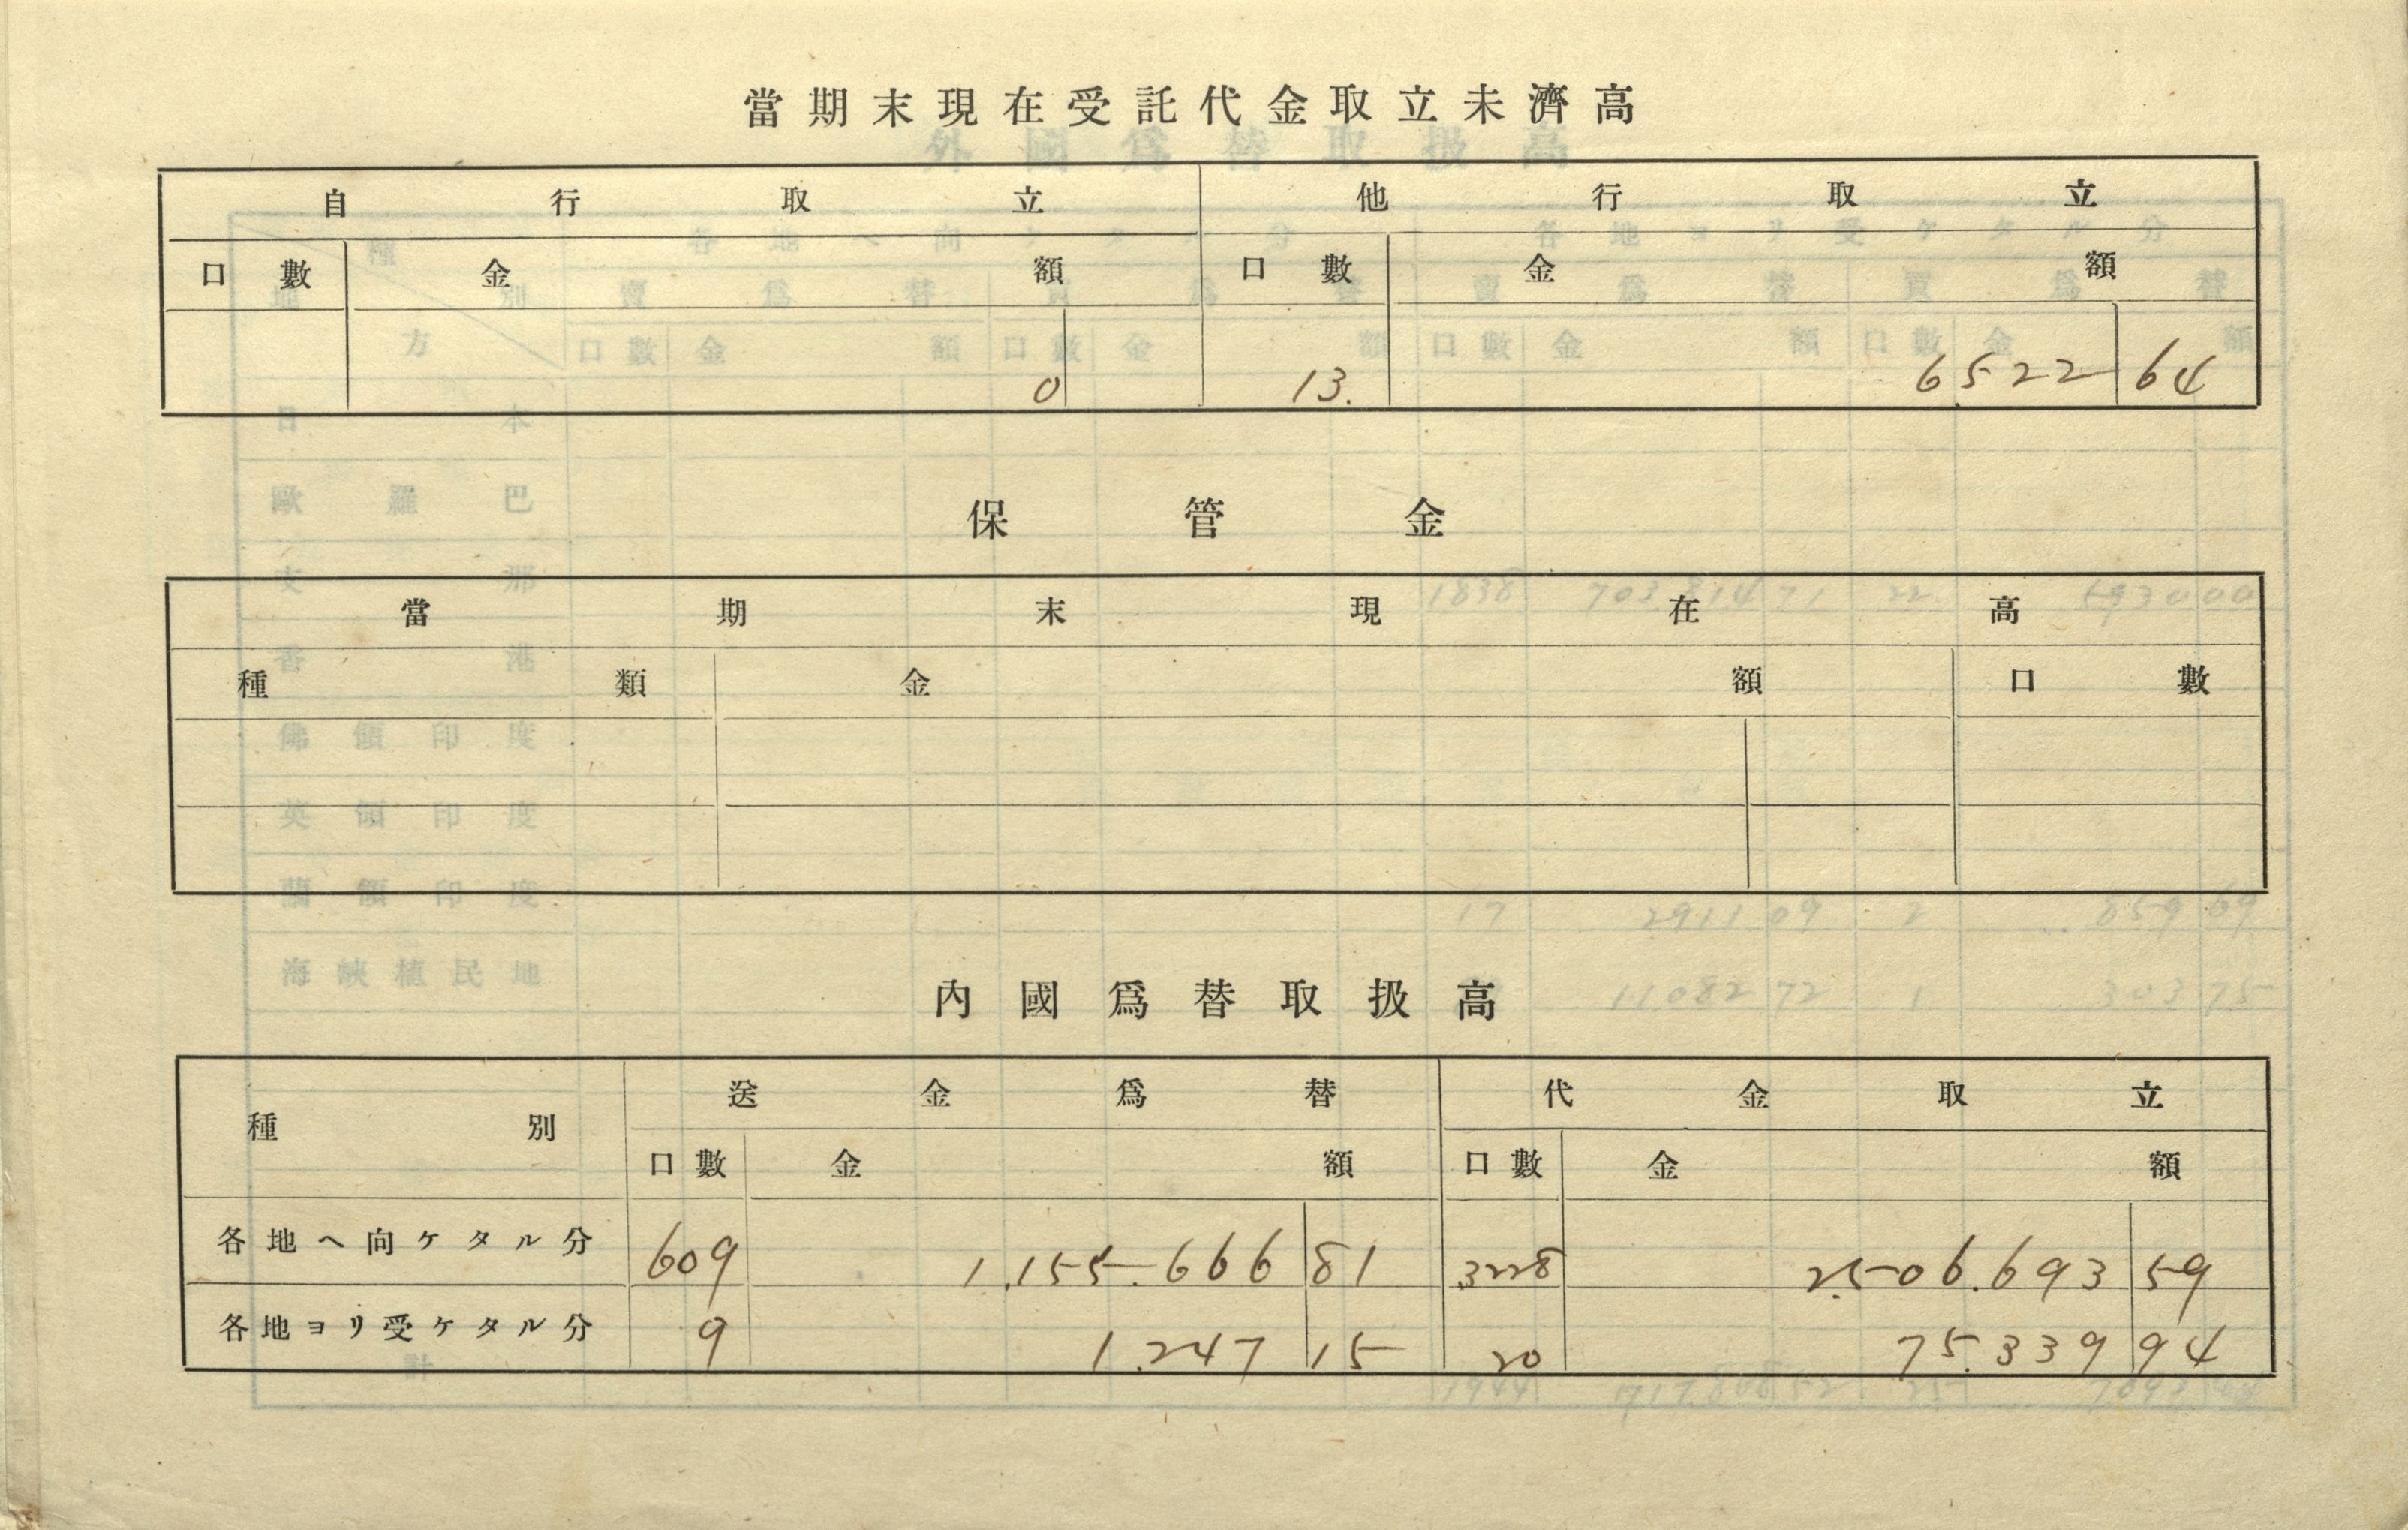 當期末現在受託代金取立未濟高
自行取立 他行取立
口數 金額 口數 金額
0 13. 6.522 64
保管金
當期末現在高
種類 金額 口數
內國爲替取扱高
種別 送金爲替 代金取立
口數 金額 口數 金額
各地ヘ向ケタル分 609 1.155.666 81 3228 2.506.693 59
各地ヨリ受ケタル分 9 1.247 15 20 75.339 94